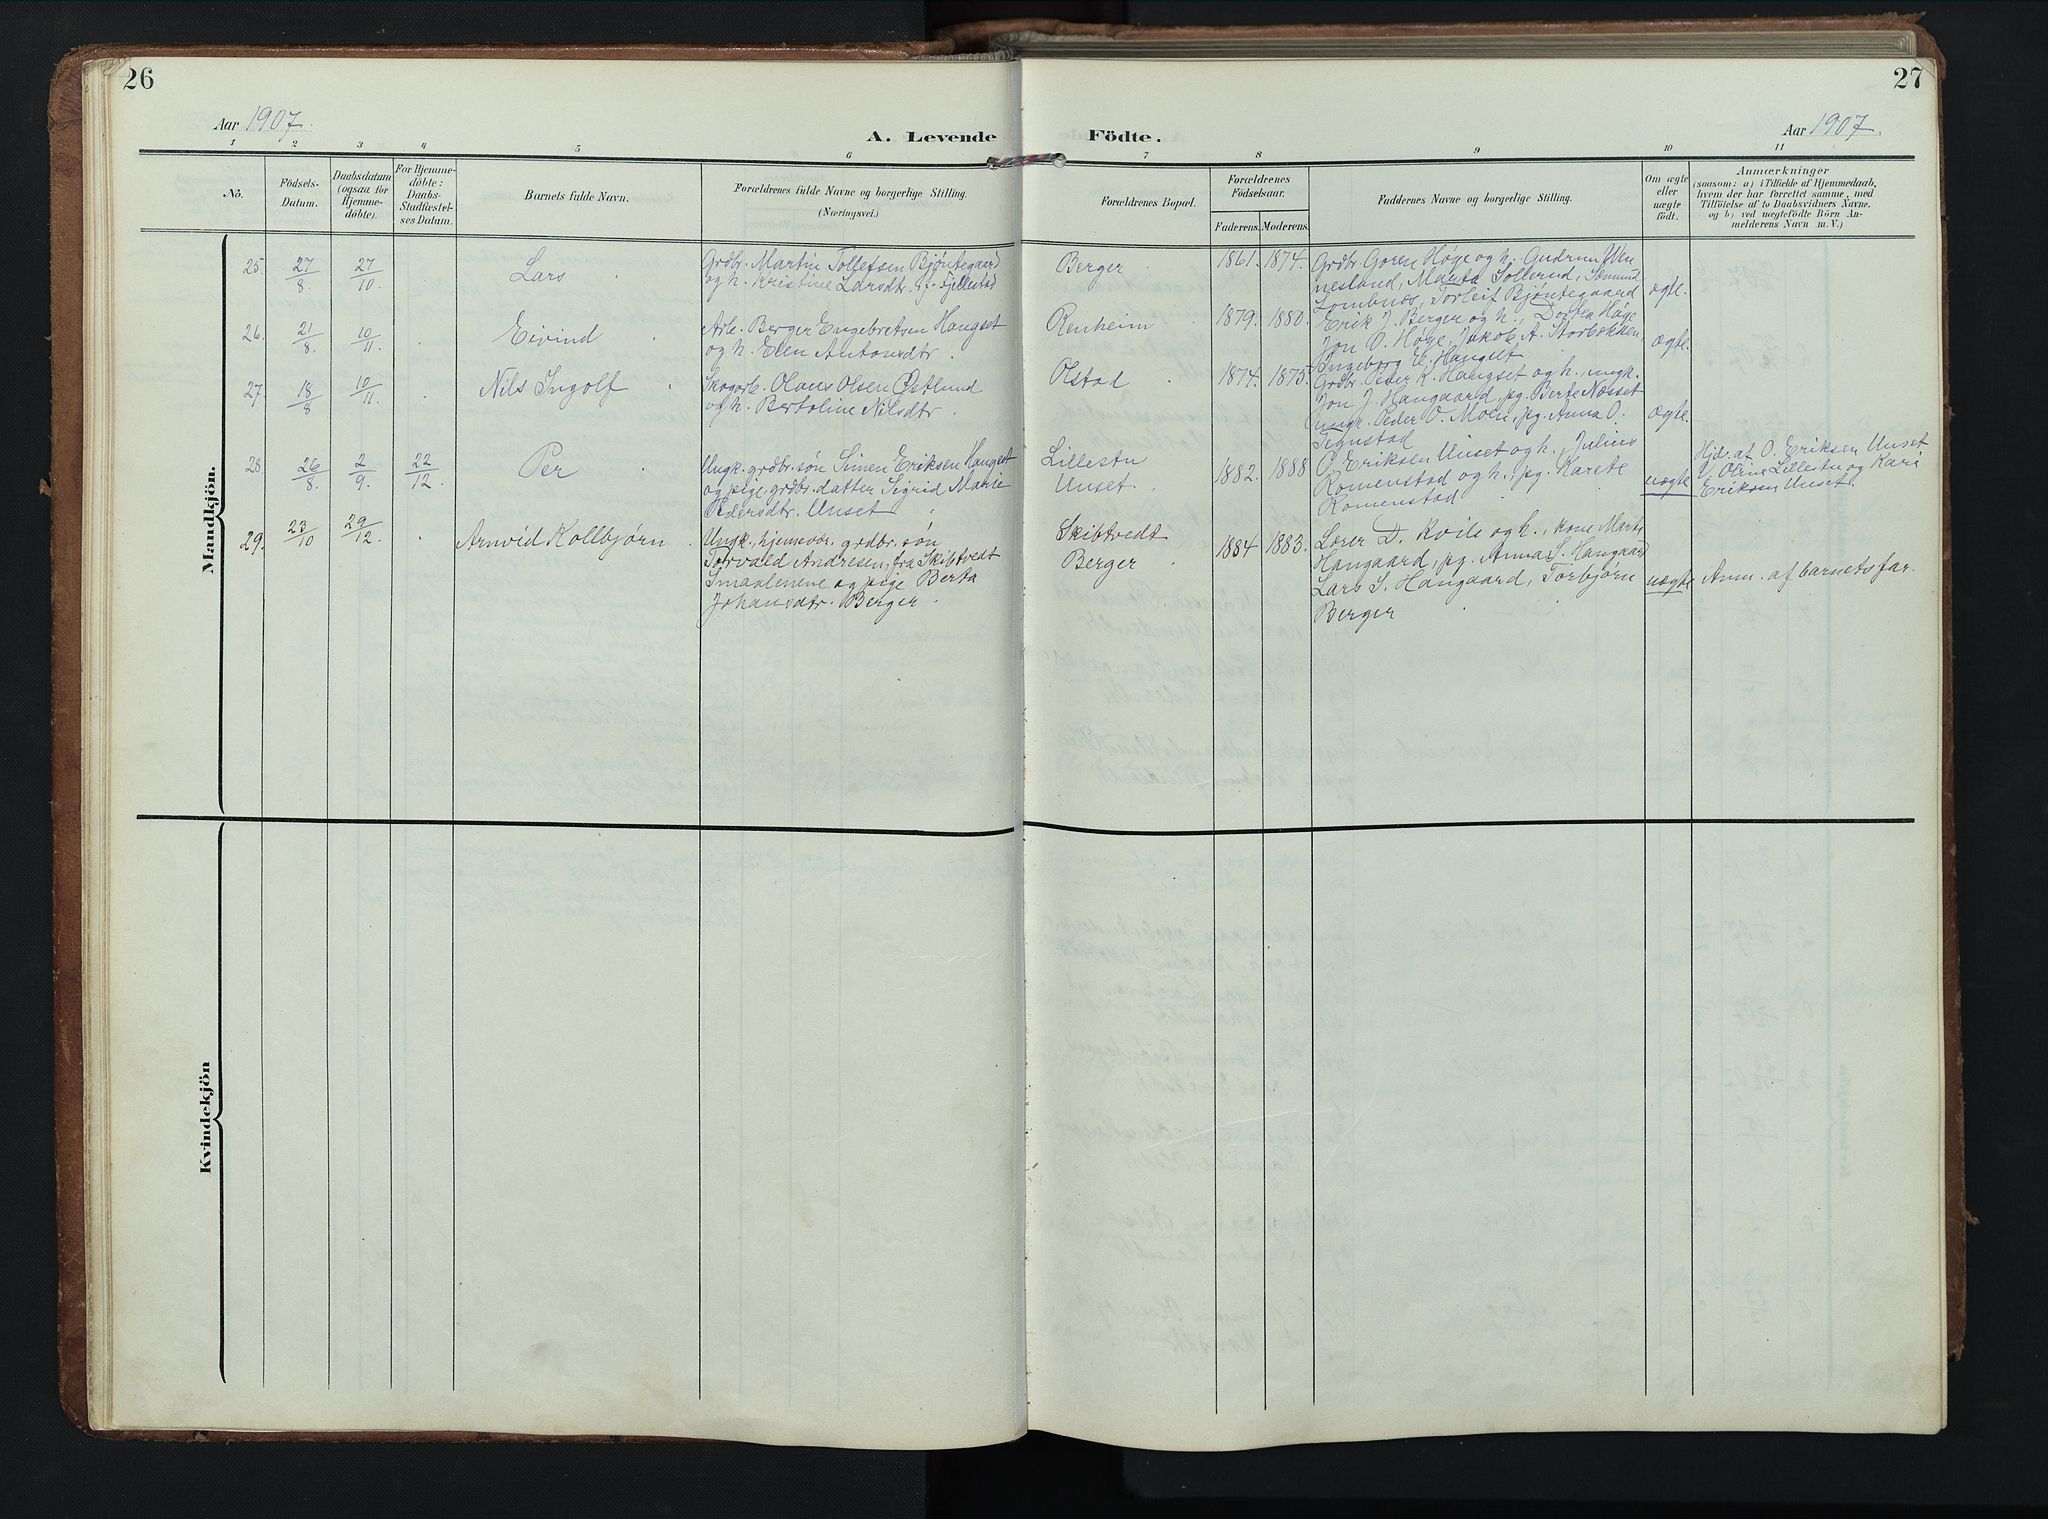 26
Aar 1907.
A. Levende
1
2
3
4
5
6
Nö.
Födsels-
Datum.
Daabsdatum
(ogsaa for
Hjemme-
döbte).
For Hjemme-
döbte:
Daabs-
Stadfæstel-
ses Datum.
Barnets fulde Navn.
Forældrenes fulde Navne og borgerlige Stilling.
(Næringsvei.)
Mandkjön.
25. 27/8 27/10 Lars
Grdbr. Martin Tollefsen Bjøntegaard
og h. Kristine Larsdtr. f. Fjellestad
26. 21/8 10/11 . Eivind
Arb. Berger Engebretsen Hangset
og h. Elen Antonsdtr.
27. 18/8 10/11 . Nils Ingolf
Skogarb. Olaus Olsen Østlund
og h. Bertoline Nilsdtr.
28. 26/8 2/9. 22/12. Per
Ungk. grdbr. søn Simen Eriksen Hangset
og pige grdbr. datter Sigrid Marie
Pedersdtr. Unset
29. 23/10 29/12. . Arnvid Kollbjørn
Ungk. hjemmevær. grdbr. søn
Torvald Andresen, fra Skibtvedt
Smaalenene og pige Berta
Johansdtr. Berger.
Kvindekjön
27
Aar 1907.
Födte.
7
8
9
10
11
Forældrenes Bopæl.
Forældrenes
Födselsaar.
Faderens. Moderens.
Faddernes Navne og borgerlige Stilling.
Om ægte
eller
uægte
födt.
Anmærkninger
(saasom: a) i Tilfælde af Hjemmedaab,
hvem der har forrettet samme, med
Tilföielse af to Daabsvidners Navne,
og b) ved uægtefödte Börn An-
melderens Navn m. V.)
Berger 1861. 1874.
Grdbr. Goren Høge og h. Gudrun Wen
nesland, Marta Sollerud, Semund
Lombnes, Torleif Bjøntegaard
ægte.
Renheim 1879. 1880.
Erik J. Berger og h., Dortea Høge
Jon O. Høge, Jakob A. Storbekken,
Ingeborg E. Hangset
ægte.
Olstad 1874. 1875.
Grdbr. Peder K. Hangset og h., ungk.
Jon J. Haugaard, pg. Berte Næsset
ungk. Peder O. Moen, pg. Anna O.
Tegnstad
ægte.
Lillestu
Unset 1882. 1888
O. Eriksen Unset og h., Julius
Romenstad og h., pg. Karete
Romenstad
uægte
Hjd. af O. Eriksen Unset
v/ Oline Lillestu og Kari
Eriksen Unset.
Skibtvedt
Berger 1884. 1883.
Lærer D. Kvile og h., kone Marte
Haugaard, pg. Anna S. Haugaard
Lars S. Haugaard, Torbjørn
Berger
uægte Anm. af barnets far.